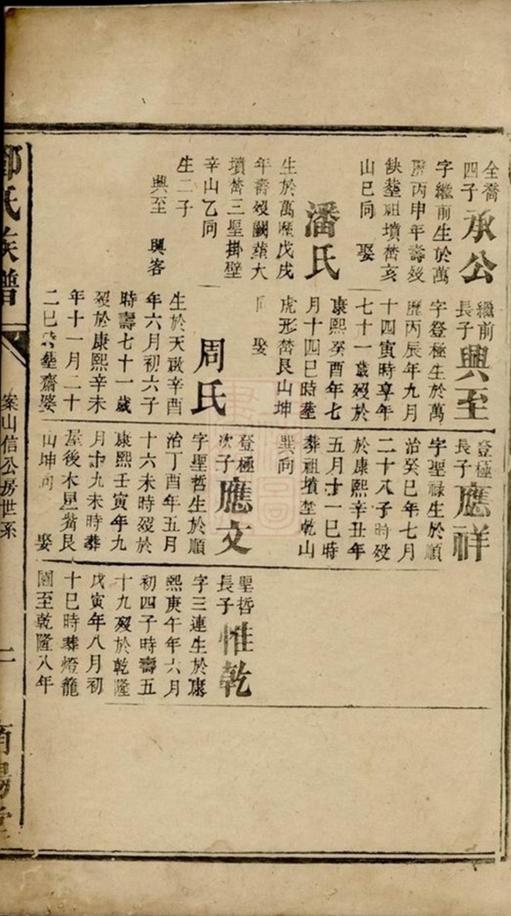 全喬
四子
承公
字繼前生於萬
曆丙申年壽歿
缺塟祖墳嵆亥
山巳向 娶
潘氏
生於萬曆戊戌
年壽歿闕塟大
墳嵆三星掛壁
辛山乙向
生二子
興至 興客
繼前
長子
興至
字登極生於萬
曆丙辰年九月
十四寅時享年
七十一歲歿於
康熙癸酉年七
月十四巳時塟
虎形嵆艮山坤
向 娶
周氏
生於天啟辛酉
年六月初六子
時壽七十一歲
歿於康熙辛未
年十一月二十
二巳時塟齋婆
登極
長子
應祥
字聖祿生於順
治癸巳年七月
二十八子時歿
於康熙辛丑年
五月十一巳時
葬祖墳塟乾山
巽向
登極
次子
應文
字聖哲生於順
治丁酉年五月
十六未時歿於
康熙壬寅年九
月十九未時葬
屋後木星嵆艮
山坤向 娶
聖哲
長子
惟乾
字三連生於康
熙庚午年六月
初四子時壽五
十九歿於乾隆
戊寅年八月初
十巳時葬燈籠
圖至乾隆八年
鄧氏族譜
案山信公房世系
二
南陽堂